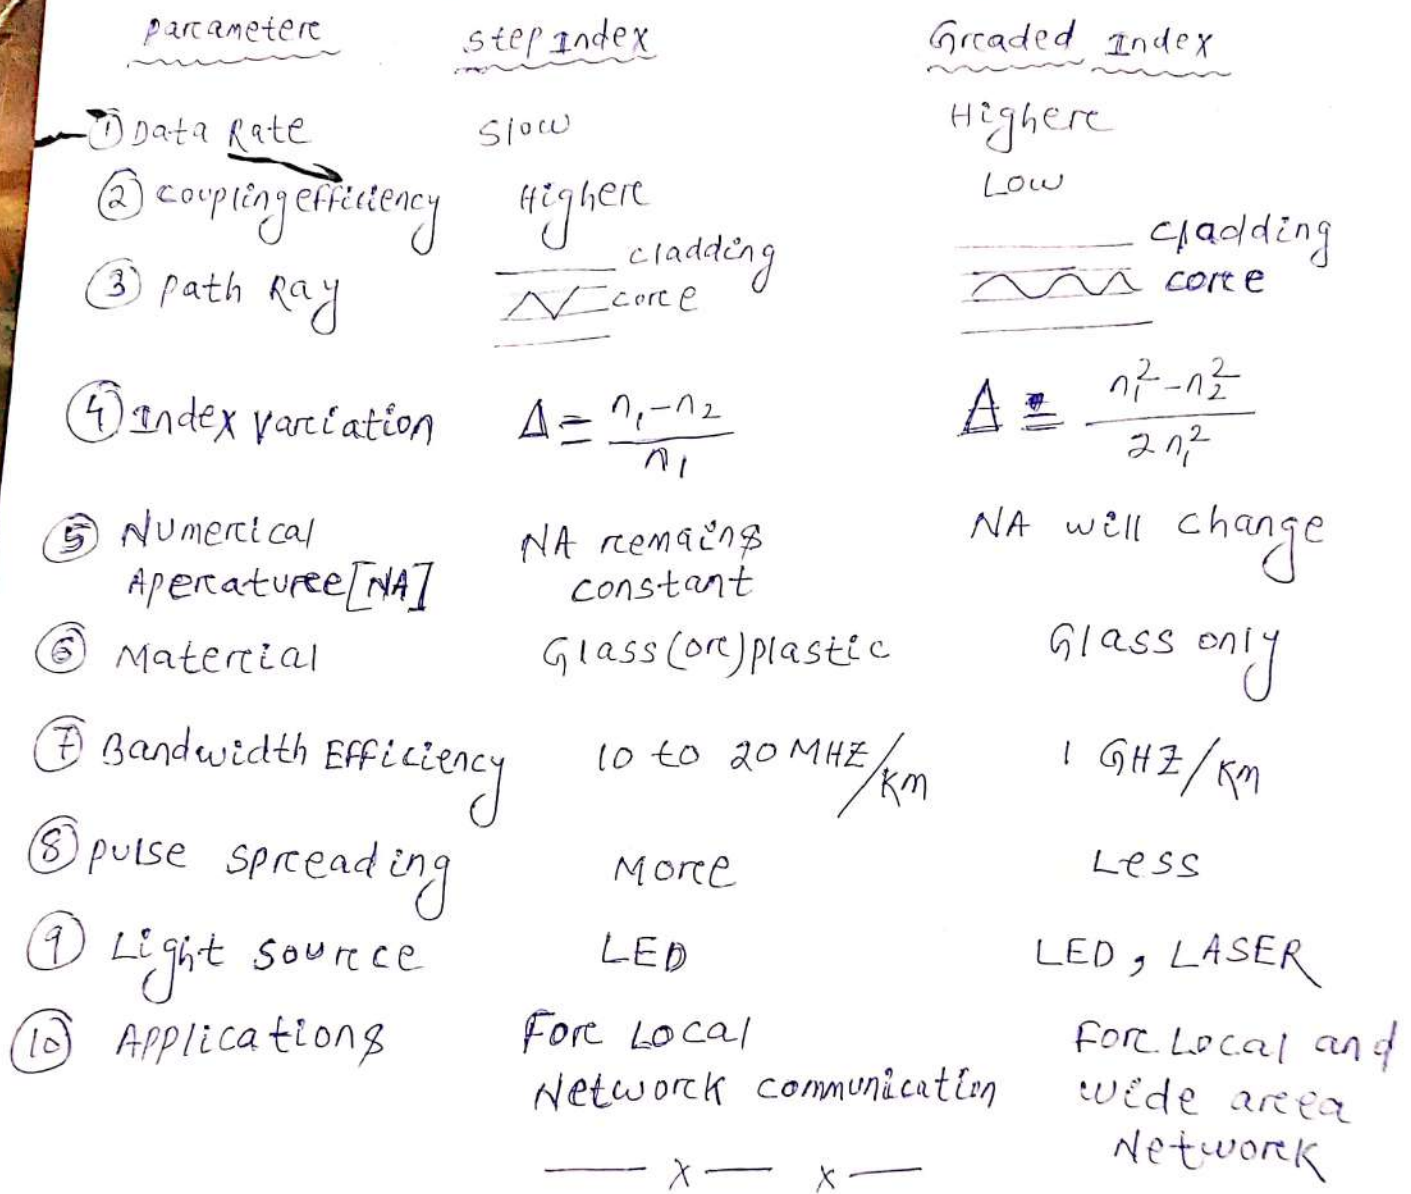 Parameter Step Index Graded Index
① Data Rate Slow Higher
② coupling efficiency Higher Low
③ Path Ray cladding core cladding core
④ Index Variation Δ = (n₁-n₂)/n₁ Δ = (n₁²-n₂²)/(2n₁²)
⑤ Numerical NA remains NA will change
Aperature [NA] constant
⑥ Material Glass (or) plastic Glass only
⑦ Bandwidth Efficiency 10 to 20 MHZ/KM 1 GHZ/KM
⑧ pulse spreading More Less
⑨ Light source LED LED, LASER
⑩ Applications For Local For Local and
Network communication wide area
Network
— x — x —